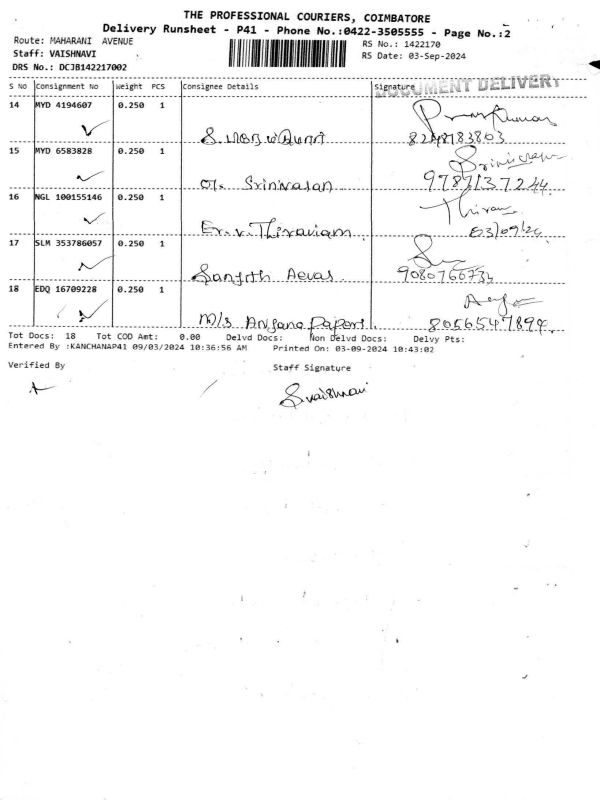 THE PROFESSIONAL COURIERS, COIMBATORE
Delivery Runsheet - P41 - Phone No.:0422-3505555 - Page No.:2
Route: MAHARANI AVENUE
RS No.: 1422170
Staff: VAISHNAVI
RS Date: 03-Sep-2024
DRS No.: DCJB142217002
DOCUMENT DELIVERY
S No Consignment No Weight PCS Consignee Details Signature
14 MYD 4194607 0.250 1
8248783803
15 MYD 6583828 0.250 1
Srinivasan
16 NGL 100155146 0.250 1
Er. V. Thiraviam
03/09/24
17 SLM 353786057 0.250 1
9080766734
18 EDQ 16709228 0.250 1
M/s Anjana Papers.
8056547894.
Tot Docs: 18 Tot COD Amt: 0.00 Delvd Docs: Non Delvd Docs: Delvy Pts:
Entered By :KANCHANAP41 09/03/2024 10:36:56 AM Printed On: 03-09-2024 10:43:02
Verified By
Staff Signature
S.vaishnavi